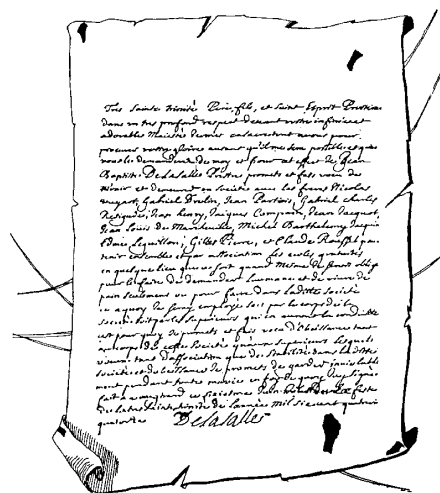 Tres Sainte Trinité Pere, fils, et Saint Esprit Prosterné
dans un tres profond respect devant votre infinie et
adorable Majesté consacre tout a vous pour
procurer votre gloire autant qu'il me sera possible et que
vous le demanderez de moy et pour cet effet Je Jean
Baptiste De La Salle Pretre promets et fais voeu de
m'unir et demeurer en Societé avec les freres Nicolas
Vuyart, Gabriel Drolin, Jean Partois, Gabriel Charles
Rasigade, Jean henry, Jacques Compain, Jean Jacquot,
Jean Louis de Marcheville, Michel Barthelemy Jacquinot
Edme Leguillon, Gilles Pierre, et Claude Roussel pour
tenir ensemble et par association les ecoles gratuites
en quelque lieu que ce soit quand mesme je serois obligé
pour le faire de demander l'aumone et de vivre de
pain seulement ou pour faire dans la ditte Societé
ce a quoy je seray employé soit par le corps de la
societé soit par les superieurs qui en auront la conduitte
c'est pourquoy je promets et fais voeu d'obeissance tant
au corps de cette Societé qu'aux superieurs lesquels
voeux tant d'association que de stabilité dans la ditte
societé et d'obeissance je promets de garder inviolable
ment pendant toute ma vie en foy de quoy j'ay signé
fait a ce sixieme Juin Jour de la feste
de la tres Sainte trinité de l'année mil six cent quatre vingt
quatorze
De La Salle